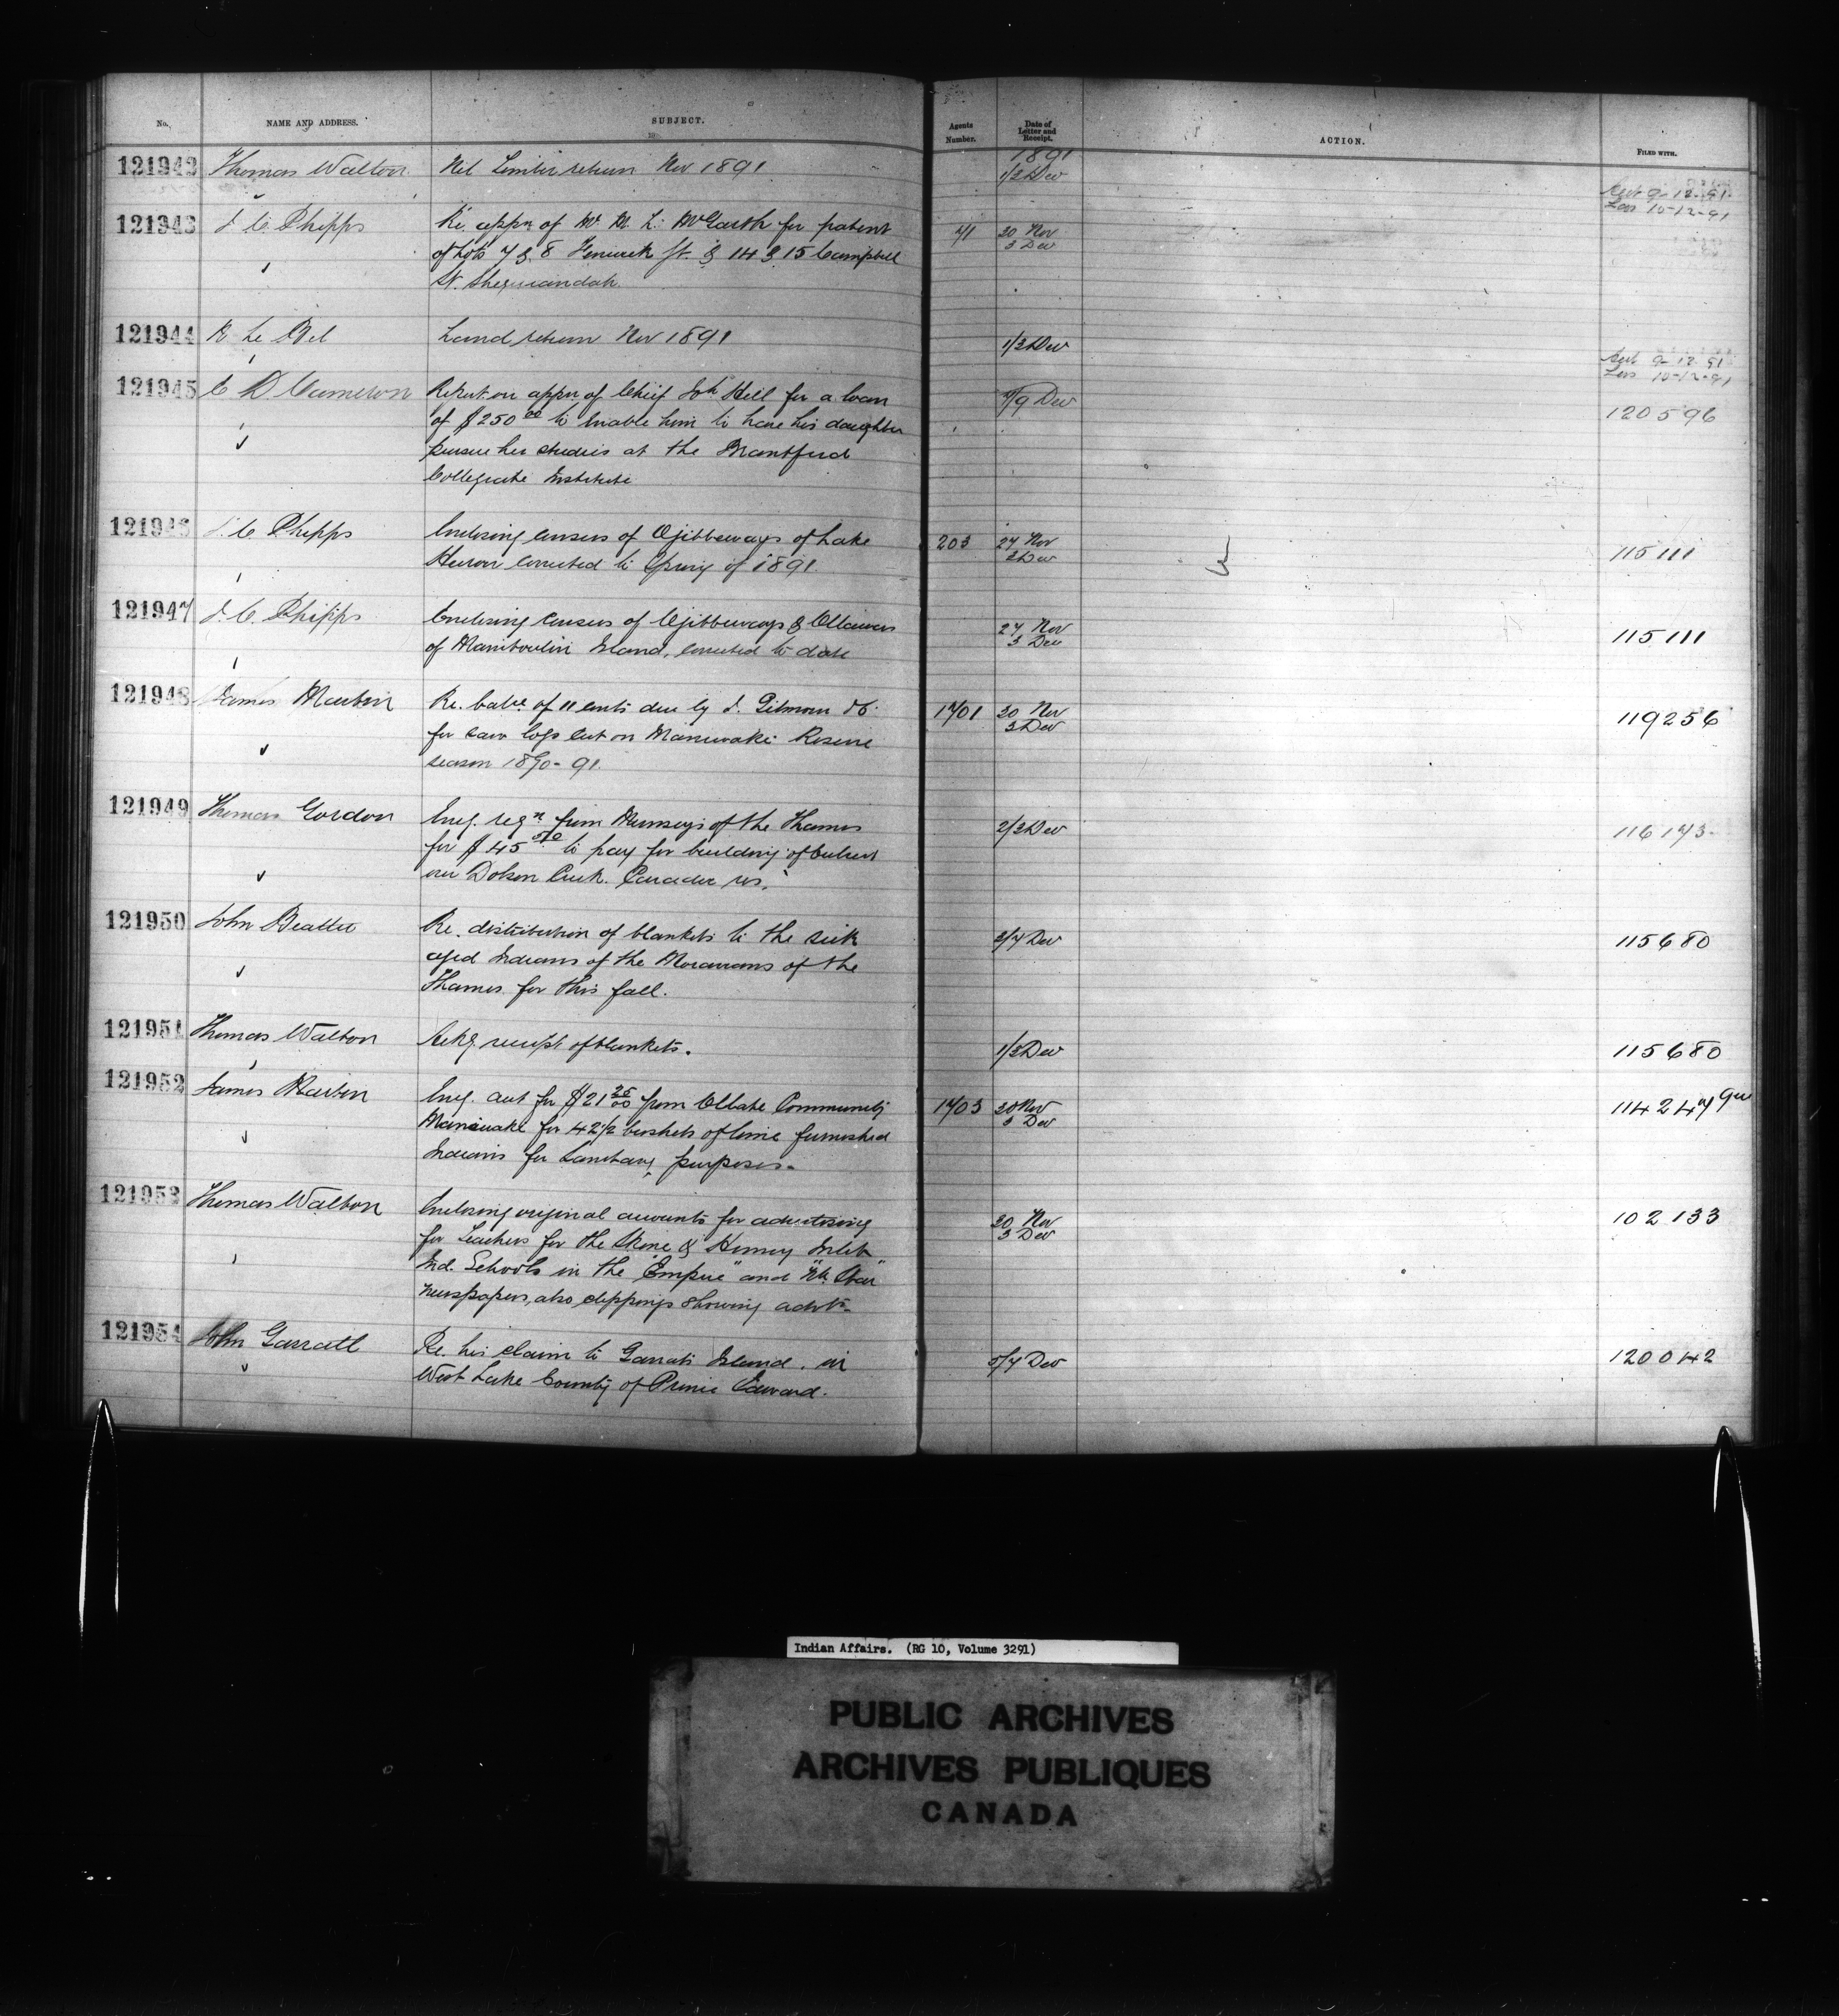 No. NAME AND ADDRESS. SUBJECT. Agents Number. Date of Letter and Receipt. ACTION. FILED WITH.
1891
121942 Thomas Walton Nil Timber return Nov 1891 1/3 Dec
9-12-91
10-12-91
121943 J. C. Phipps Re. appn of Mr. M. L. McGarth for patent 71 30 Nov
of Lots 7 & 8 Fenwick St. & 14 & 15 Campbell 3 Dec
St. Sheguiandah
121944 R Le Bel Land return Nov 1891 1/3 Dec
9-12-91
10-12-91
121945 E D Cameron Report on appn of Chief Hill for a loan /9 Dec 120596
of $250 00 to enable him to have his daughter
pursue her studies at the Brantford
Collegiate Institute
121946 J. C. Phipps Enclosing census of Ojibbeways of Lake 203 27 Nov 115111
Huron corrected to Spring of 1891. 3 Dec
121947 J. C. Phipps Enclosing census of Ojibbeways & Ottawas 27 Nov 115111
of Manitoulin Island, corrected to date 3 Dec
121948 James Martin Re. balce of 11 cents due by J. Gilmour & Co 1701 30 Nov 119256
for saw logs cut on Maniwaki Reserve 3 Dec
season 1890-91.
121949 Thomas Gordon Encg. reqn from Munseys of the Thames 2/3 Dec 116173
for $45 to pay for building of culvert
over Dolson Creek. Caradoc res.
121950 John Beattie Re. distribution of blankets to the sick 3/4 Dec 115680
aged Indians of the Moravians of the
Thames for this fall.
121951 Thomas Walton Ackg. receipt of blankets. 1/3 Dec 115680
121952 James Martin Encg. act for $21 25/00 from Oblate Community 1703 30 Nov 114247
Maniwake for 42 1/2 bushels of lime furnished 3 Dec
Indians for Sanitary purposes.
121953 Thomas Walton Enclosing original accounts for advertising 30 Nov 102133
for Teachers for the Skene & Henvey Inlet 3 Dec
Ind. Schools in the "Empire" and "Nh. Star"
newspapers, also clippings showing advts.
121954 John Garratt Re. his claim to Garrats Island. in /4 Dec 120042
West Lake County of Prince Edward.
Indian Affairs. (RG 10, Volume 3291)
PUBLIC ARCHIVES
ARCHIVES PUBLIQUES
CANADA